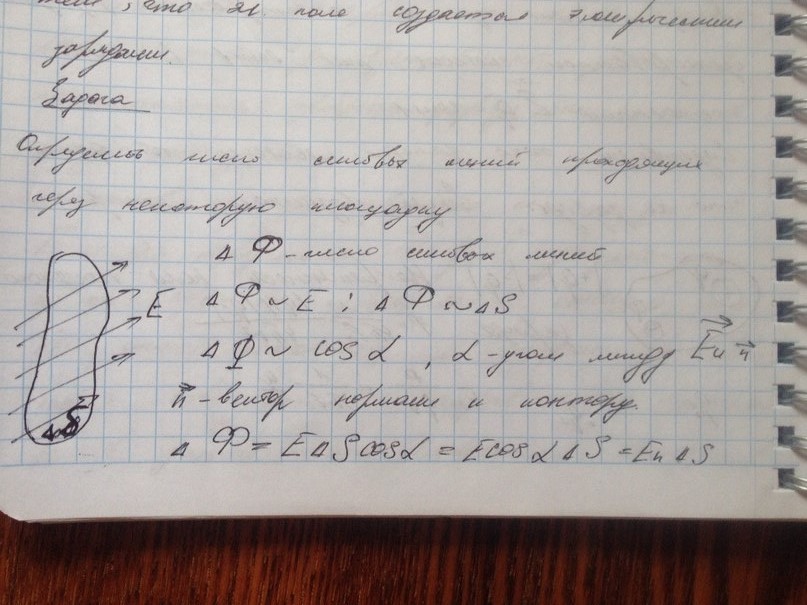 , что эл. поле создается электрическими
зарядами.
Задача
Определить число силовых линий проходящих
через некоторую площадку
ΔФ - число силовых линий
E ΔФ ~ E ; ΔФ ~ ΔS
ΔФ ~ cos α , α - угол между E⃗ и n⃗
n⃗ - вектор нормали к контуру.
ΔS
ΔФ = EΔS cos α = E cos α ΔS = Eₙ ΔS